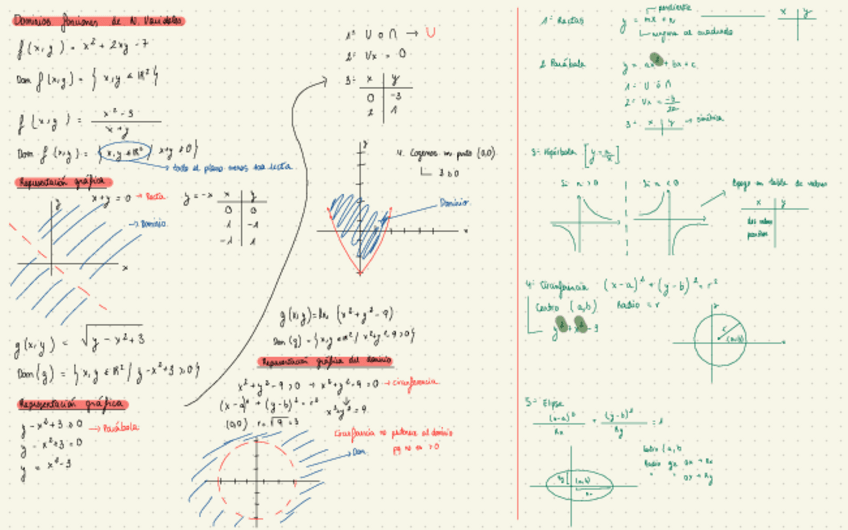 Dominios funciones de N. Variables
f(x,y) = x² + 2xy - 7
Dom f(x,y) = { x,y ∈ ℝ² }
f(x,y) = x² - 3 / x + y
Dom f(x,y) = { x,y ∈ ℝ² / x+y ≠ 0 }
→ todo el plano menos esa recta
Representación gráfica
x+y = 0 → Recta
→ Dominio
y = -x
x | y
0 | 0
1 | -1
-1 | 1
y
x
g(x,y) = √(y - x² + 3)
Dom(g) = { x,y ∈ ℝ² / y - x² + 3 ≥ 0 }
Representación gráfica
y - x² + 3 ≥ 0 → Parábola
y - x² + 3 = 0
y = x² - 3
1º U o ∩ → U
2º Vx = 0
3º x | y
0 | -3
2 | 1
4. Cogemos un punto (0,0)
3 ≥ 0
Dominio
g(x,y) = Ln (x² + y² - 9)
Dom(g) = { x,y ∈ ℝ² / x² + y² - 9 > 0 }
Representación gráfica del dominio
x² + y² - 9 > 0 → x² + y² - 9 = 0 → circunferencia
(x-a)² + (y-b)² = r²
x² + y² = 9
(0,0) r = √9 = 3
Circunferencia no pertenece al dominio
pq no es ≥ 0
→ Dom
1º Rectas
y = mx + n
pendiente
x | y
2 Parábola
y = ax² + bx + c
1 = U ó ∩
2 = Vx = -b / 2a
3 = x | y → simétrica
3º Hipérbola [ y = k/x ]
Si k > 0
Si k < 0
tabla de valores
x | y
4º Circunferencia (x-a)² + (y-b)² = r²
Centro (a,b) Radio = r
r
(a,b)
5º Elipse
(x-a)² / Rx + (y-b)² / Ry = 1
(a,b)
Rx
Ry